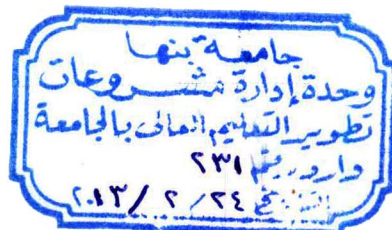 جامعة بنها
وحدة إدارة مشروعات
تطوير التعليم العالى بالجامعة
وارد رقم ٢٣١
التاريخ ٢٤ / ٢ / ٢٠١٣